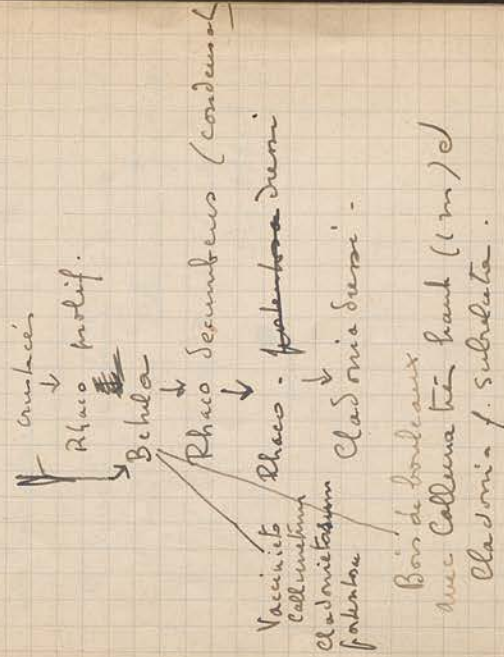 crustacés
Rhaco prolif.
Betula
Rhaco decumbens (condensat
Rhaco - portentosa dressi
Cladonia dressi -
Vaccinieto
Callunetum
Cladonietosum
portentosa
Bois de bouleaux
avec Calluna très haut (1 m) et
Cladonia f. subrelicta.